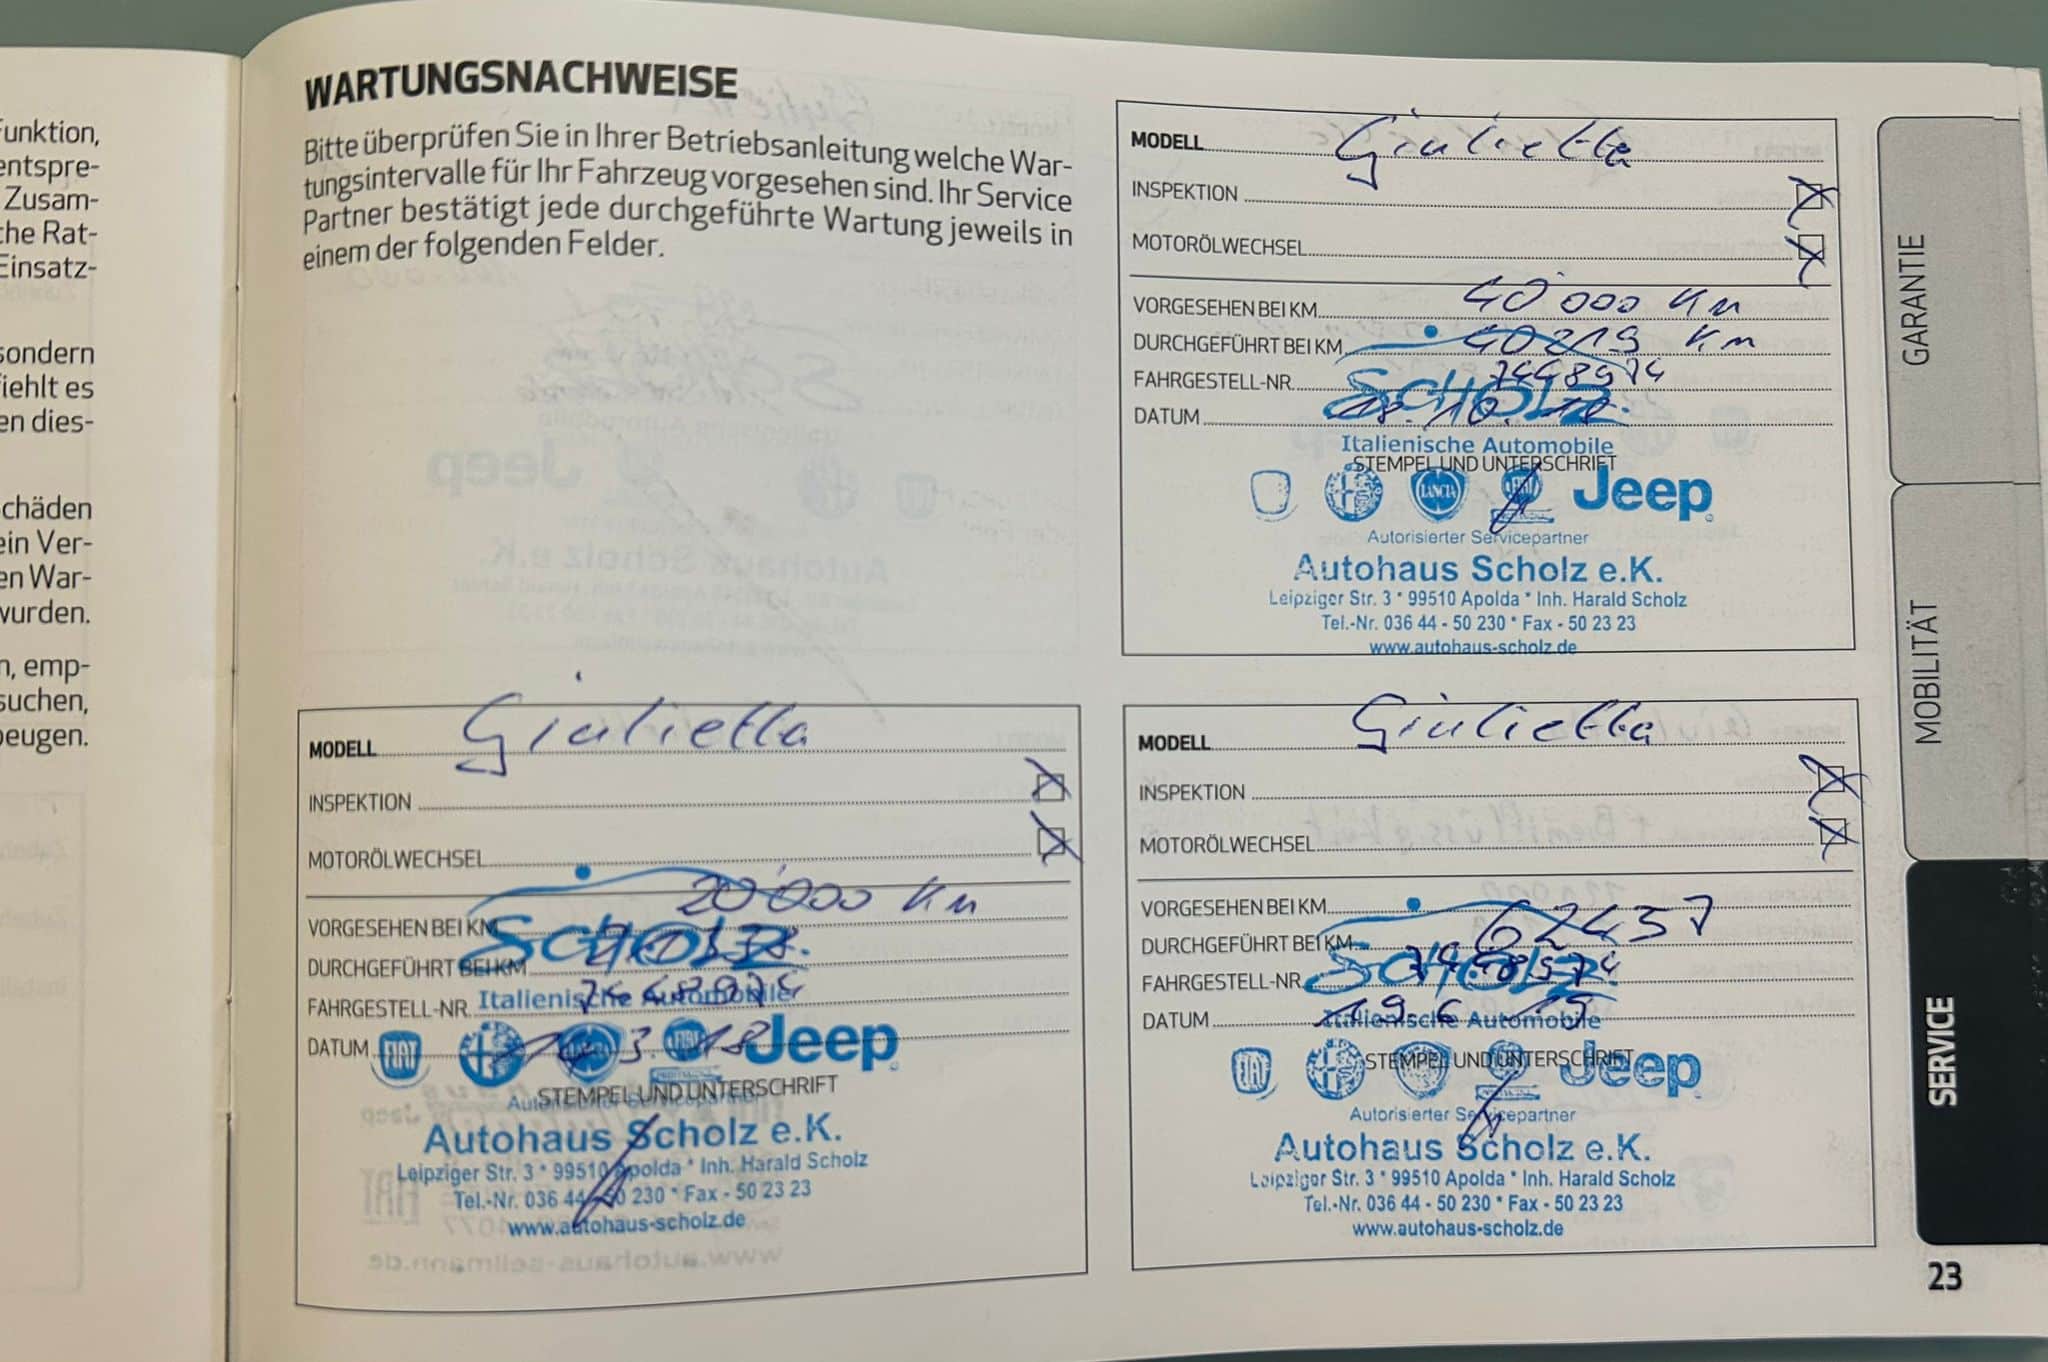 unktion,
entspre-
Zusam-
che Rat-
Einsatz-
sondern
iehlt es
en dies-
chäden
ein Ver-
en War-
wurden.
n, emp-
suchen,
beugen.
WARTUNGSNACHWEISE
Bitte überprüfen Sie in Ihrer Betriebsanleitung welche War-
tungsintervalle für Ihr Fahrzeug vorgesehen sind. Ihr Service
Partner bestätigt jede durchgeführte Wartung jeweils in
einem der folgenden Felder.
MODELL Giulietta
INSPEKTION
MOTORÖLWECHSEL
VORGESEHEN BEI KM 20'000 Km
DURCHGEFÜHRT BEI KM
FAHRGESTELL-NR.
DATUM
SCHOLZ
Italienische Automobile
FIAT Jeep
STEMPEL UND UNTERSCHRIFT
Autorisierter Servicepartner
Autohaus Scholz e.K.
Leipziger Str. 3 * 99510 Apolda * Inh. Harald Scholz
Tel.-Nr. 036 44 - 50 230 * Fax - 50 23 23
www.autohaus-scholz.de
MODELL Giulietta
INSPEKTION
MOTORÖLWECHSEL
VORGESEHEN BEI KM 40'000 Km
DURCHGEFÜHRT BEI KM 40219 Km
FAHRGESTELL-NR. 7448974
DATUM
SCHOLZ
Italienische Automobile
STEMPEL UND UNTERSCHRIFT
LANCIA Jeep
Autorisierter Servicepartner
Autohaus Scholz e.K.
Leipziger Str. 3 * 99510 Apolda * Inh. Harald Scholz
Tel.-Nr. 036 44 - 50 230 * Fax - 50 23 23
www.autohaus-scholz.de
MODELL Giulietta
INSPEKTION
MOTORÖLWECHSEL
VORGESEHEN BEI KM
DURCHGEFÜHRT BEI KM 62457
FAHRGESTELL-NR.
DATUM
SCHOLZ
Italienische Automobile
STEMPEL UND UNTERSCHRIFT
FIAT Jeep
Autorisierter Servicepartner
Autohaus Scholz e.K.
Leipziger Str. 3 * 99510 Apolda * Inh. Harald Scholz
Tel.-Nr. 036 44 - 50 230 * Fax - 50 23 23
www.autohaus-scholz.de
GARANTIE
MOBILITÄT
SERVICE
23